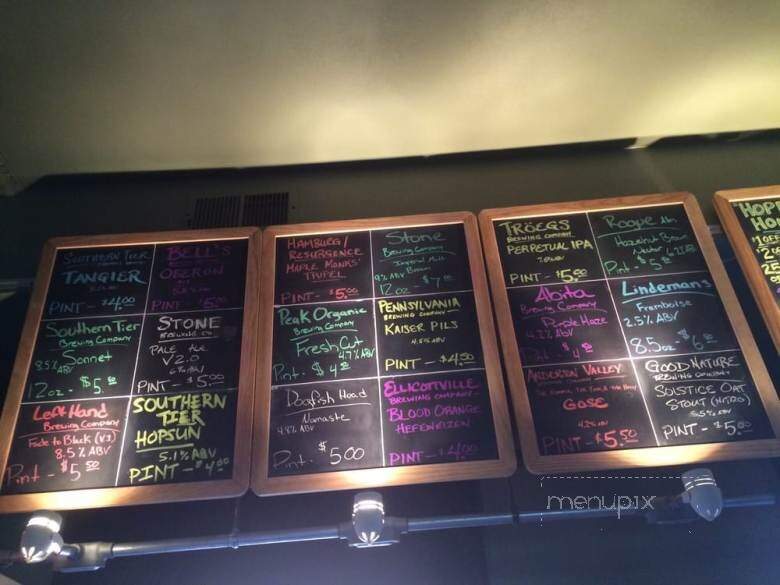 SOUTHERN TIER
TANGIER
PINT - $4.00
BELL'S
OBERON
PINT - $5.00
Southern Tier
Brewing Company
Sonnet
8.5% ABV
12oz - $5.00
STONE
BREWING CO
PALE ALE
V2.0
PINT - $5.00
Left Hand
Brewing Company
Fade to Black (V3)
8.5% ABV
Pint - $5.50
SOUTHERN
TIER
HOPSUN
5.1% ABV
PINT - $4.00
HAMBURG/
RESURGENCE
MAPLE MONKS'
TRIPEL
PINT - $5.00
Stone
Brewing Company
Brown
9% ABV
12oz - $7.00
Peak Organic
Brewing Company
Fresh Cut
4.7% ABV
Pint - $4.00
PENNSYLVANIA
BREWING COMPANY
KAISER PILS
4.5% ABV
PINT - $4.50
Dogfish Head
Namaste
4.8% ABV
Pint - $5.00
ELLICOTTVILLE
BREWING COMPANY
BLOOD ORANGE
HEFEWEIZEN
PINT - $4.00
TRÖEGS
BREWING COMPANY
PERPETUAL IPA
PINT - $5.00
Rogue Ales
Hazelnut Brown
Nectar
Pint - $5.00
Abita
Brewing Company
Purple Haze
4.2% ABV
Pint - $4.00
Lindemans
Framboise
2.5% ABV
8.5oz - $6.00
ANDERSON VALLEY
GOSE
4.2% ABV
PINT - $5.50
GOOD NATURE
BREWING COMPANY
SOLSTICE OAT
STOUT (NITRO)
5.5% ABV
PINT - $5.00
"HOPP
HOU
menupix